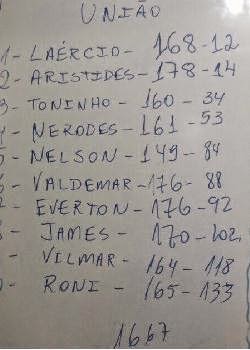 UNIÃO
1- LAÉRCIO- 168-12
2- ARISTIDES-178-14
3- TONINHO - 160 - 34
NERODES - 161 - 53
5- NELSON - 149 - 84
VALDEMAR -176- 88
EVERTON - 176-92
JAMES - 170-102
- VILMAR - 164 - 118
- RONI - 165-133
1667